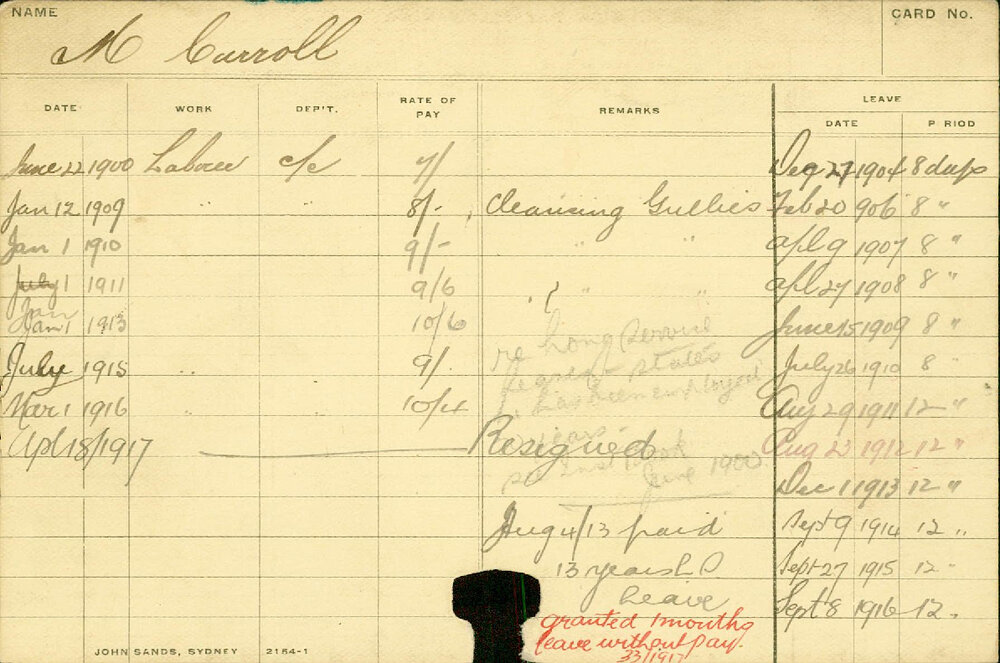 NAME
CARD No.
M Carroll
DATE WORK DEP'T. RATE OF PAY REMARKS LEAVE
DATE P RIOD
June 22 1900 Labourer c/c 7/ Dec 27 1904 8 days
Jan 12 1909 " " 8/- Cleansing Gullies Feb 20 906 8 "
Jan 1 1910 9/- " " apl 9 1907 8 "
July 1 1911 9/6 " " apl 27 1908 8 "
Jan
Jan 1 1913 10/6 June 15 1909 8 "
re Long Service
July 1915 " 9/. July 26 1910 8 "
states
has been employed
Mar 1 1916 " 10/4 Aug 29 1911 12 "
years
Apl 18/1917 Resigned Aug 23 1912 12 "
June 1900
Dec 1 1913 12 "
Aug 4/13 paid Sept 9 1914 12 "
13 years L.S. Sept 27 1915 12 "
Leave Sept 8 1916 12 "
granted 1 months
leave without pay.
33/1917
JOHN SANDS, SYDNEY 2154-1